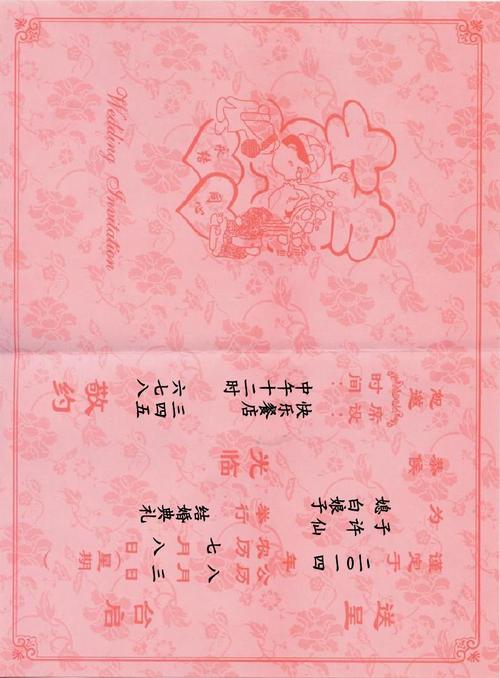 Wedding Invitation
永结
同心
送呈 台启
谨定于二〇一四年公历八月三日（星期 ）
农历七月八日
为 子 许仙
媳 白娘子 举行 结婚典礼
恭候 光临
席设：快乐餐店 三四五
时间：中午十二时 六七八
敬约